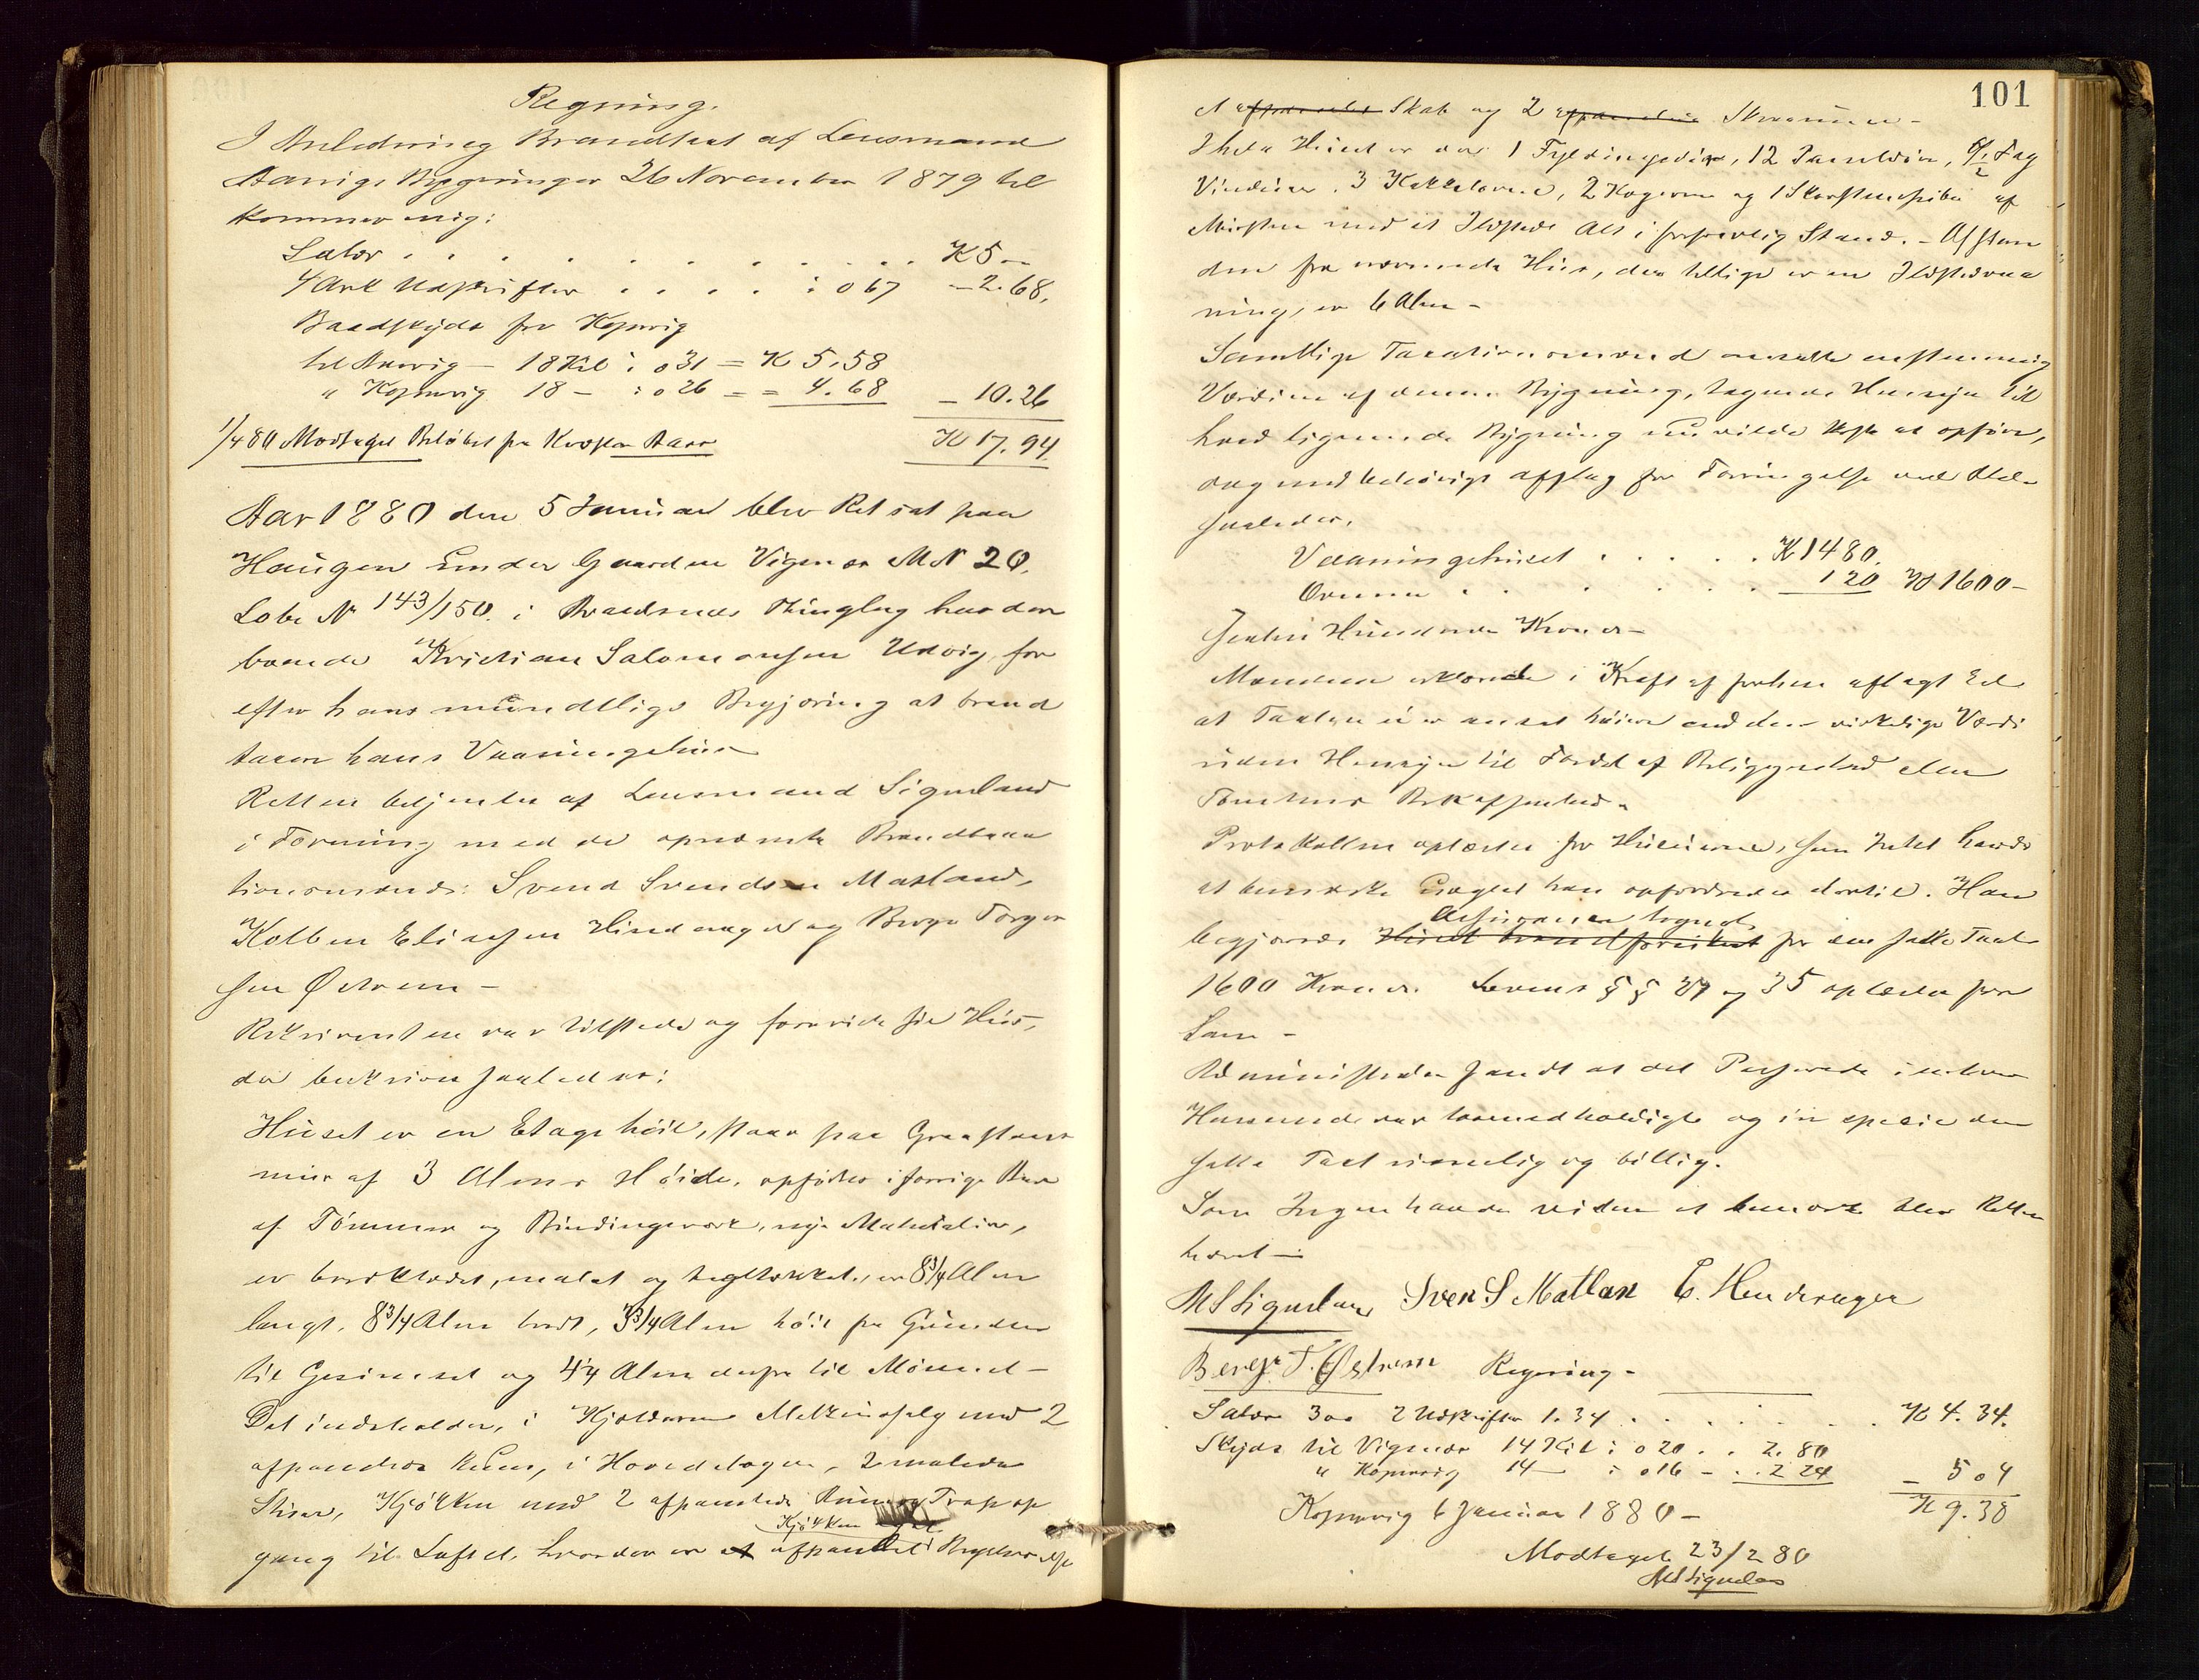 Regning.
I Anledning Brandtaxt af Lensmand
Aanrigs Bygninger 26 November 1879 til
kommer mig:
Salær . . . . . . . . . K 5 -
4 Ark Udskrifter . . . . : 0 67 - 2.68.
Baadskyds fra Kopervig
til Ankvig - 18 Kil : 0 31 = K 5,58
" Kopervig 18 - : 0 26 - = 4.68 - 10.26
1/4 80 Modtaget Beløbet fra K. 17.94.
Aar 1880 den 5 Januar blev Ret sat paa
Haugen under Gaarden Vignæs M N 20.
Løbe N 143/150. i Avaldsnes Thinglag hos den
boende Kristian Salomonsen Utvig for
efter hans mundtlige Begjæring at brand
taxere hans Vaaningshuus
Retten betjentes af Lensmand Signeland
i Forening med de opnævnte Brandtaxa
tionsmænd: Svend Svendsen Matland,
Kolben Eliassen Hinderager og Berge Torger
sen Østrem -
Rekvirenten var tilstede og foreviste sit Huus,
der beskrives saaledes:
Huset er en Etage høit, staar paa Graastens
mur af 3 Alens Høide, opført i forrige Aar
af Tømmer og Bindingsværk, nye Materialier,
er bordklædt, malet og tegltækket, er 8 3/4 Alen
langt, 8 3/4 Alen bredt, 3 3/4 Alen høit fra Grunden
til Gesimset og 4 1/4 Alen derfra til Mønnet -
Det indeholder, i Kjælderen med 2
afpanelede Rum, i Hovedetagen, 2 malede
Stuer, Kjøkken med 2 afpanelede Rum og Trap op
Kjøkken
gang til Loftet, hvorder er et afpanelet
101
1 Skab og 2
I hele Huset er der 1 Fyldingsdør, 12 Paneldøre, 6 1/2 Fag
Vinduer, 3 Kakkelovne, 2 Kogeovne og 1 Skorstenspibe af
Mursten med et Ildsted Alt i forsvarlig Stand. - Afstan
den fra nærmeste Huus, der tillige er en Ildstedsvaa
ning, er 6 Alen -
Samtlige Taxationsmænd ansatte enstemmig
Værdien af denne Bygning, tagende Hensyn til
hvad lignende Bygning nu vilde koste at opføre,
dog med behørigt afslag for Forringelse ved Ælde
saaledes,
Vaaningshuset . . . . . K 1480.
Ovenne . . . . . . 120 K 1600 -
Sexten Hundrede Kroner -
Mændene erklærede i Kraft af forhen aflagt Ed
at Taxten ei er ansat høiere end den virkelige Værdi
uden Hensyn til Fordel af Beliggenhed eller
Tomtens Beskaffenhed.
Protokollen oplæstes for Huuseieren, som Intet havde
at bemærke uagtet han opfordredes dertil. Han
Assurancen tegnet
begjærede Huset brandforsikret for den satte Taxt
1600 Kroner. Lovens § § 27 og 35 oplæstes for
ham -
Administrator fandt at det Passerede i enhver
Henseende var lovmedholdigt og in specie den
satte Taxt rimelig og billig.
Som Ingen havde videre at bemærke blev Retten
hævet -
MSSigneland Sven S Matlan E. Hinderager
Berge T. Østrem Regning -
Salær 3 00 2 Udskrifter 1.34 . . . . . . . K 4.34.
Skyds til Vignæs 14 Kil : 0 20 . . 2.80
" Kopervig 14 - : 0 16 - . . 2 24 - 5 04
Kopervig 6 Januar 1880 - K 9.38
Modtaget 23/2 80
MSSigneland